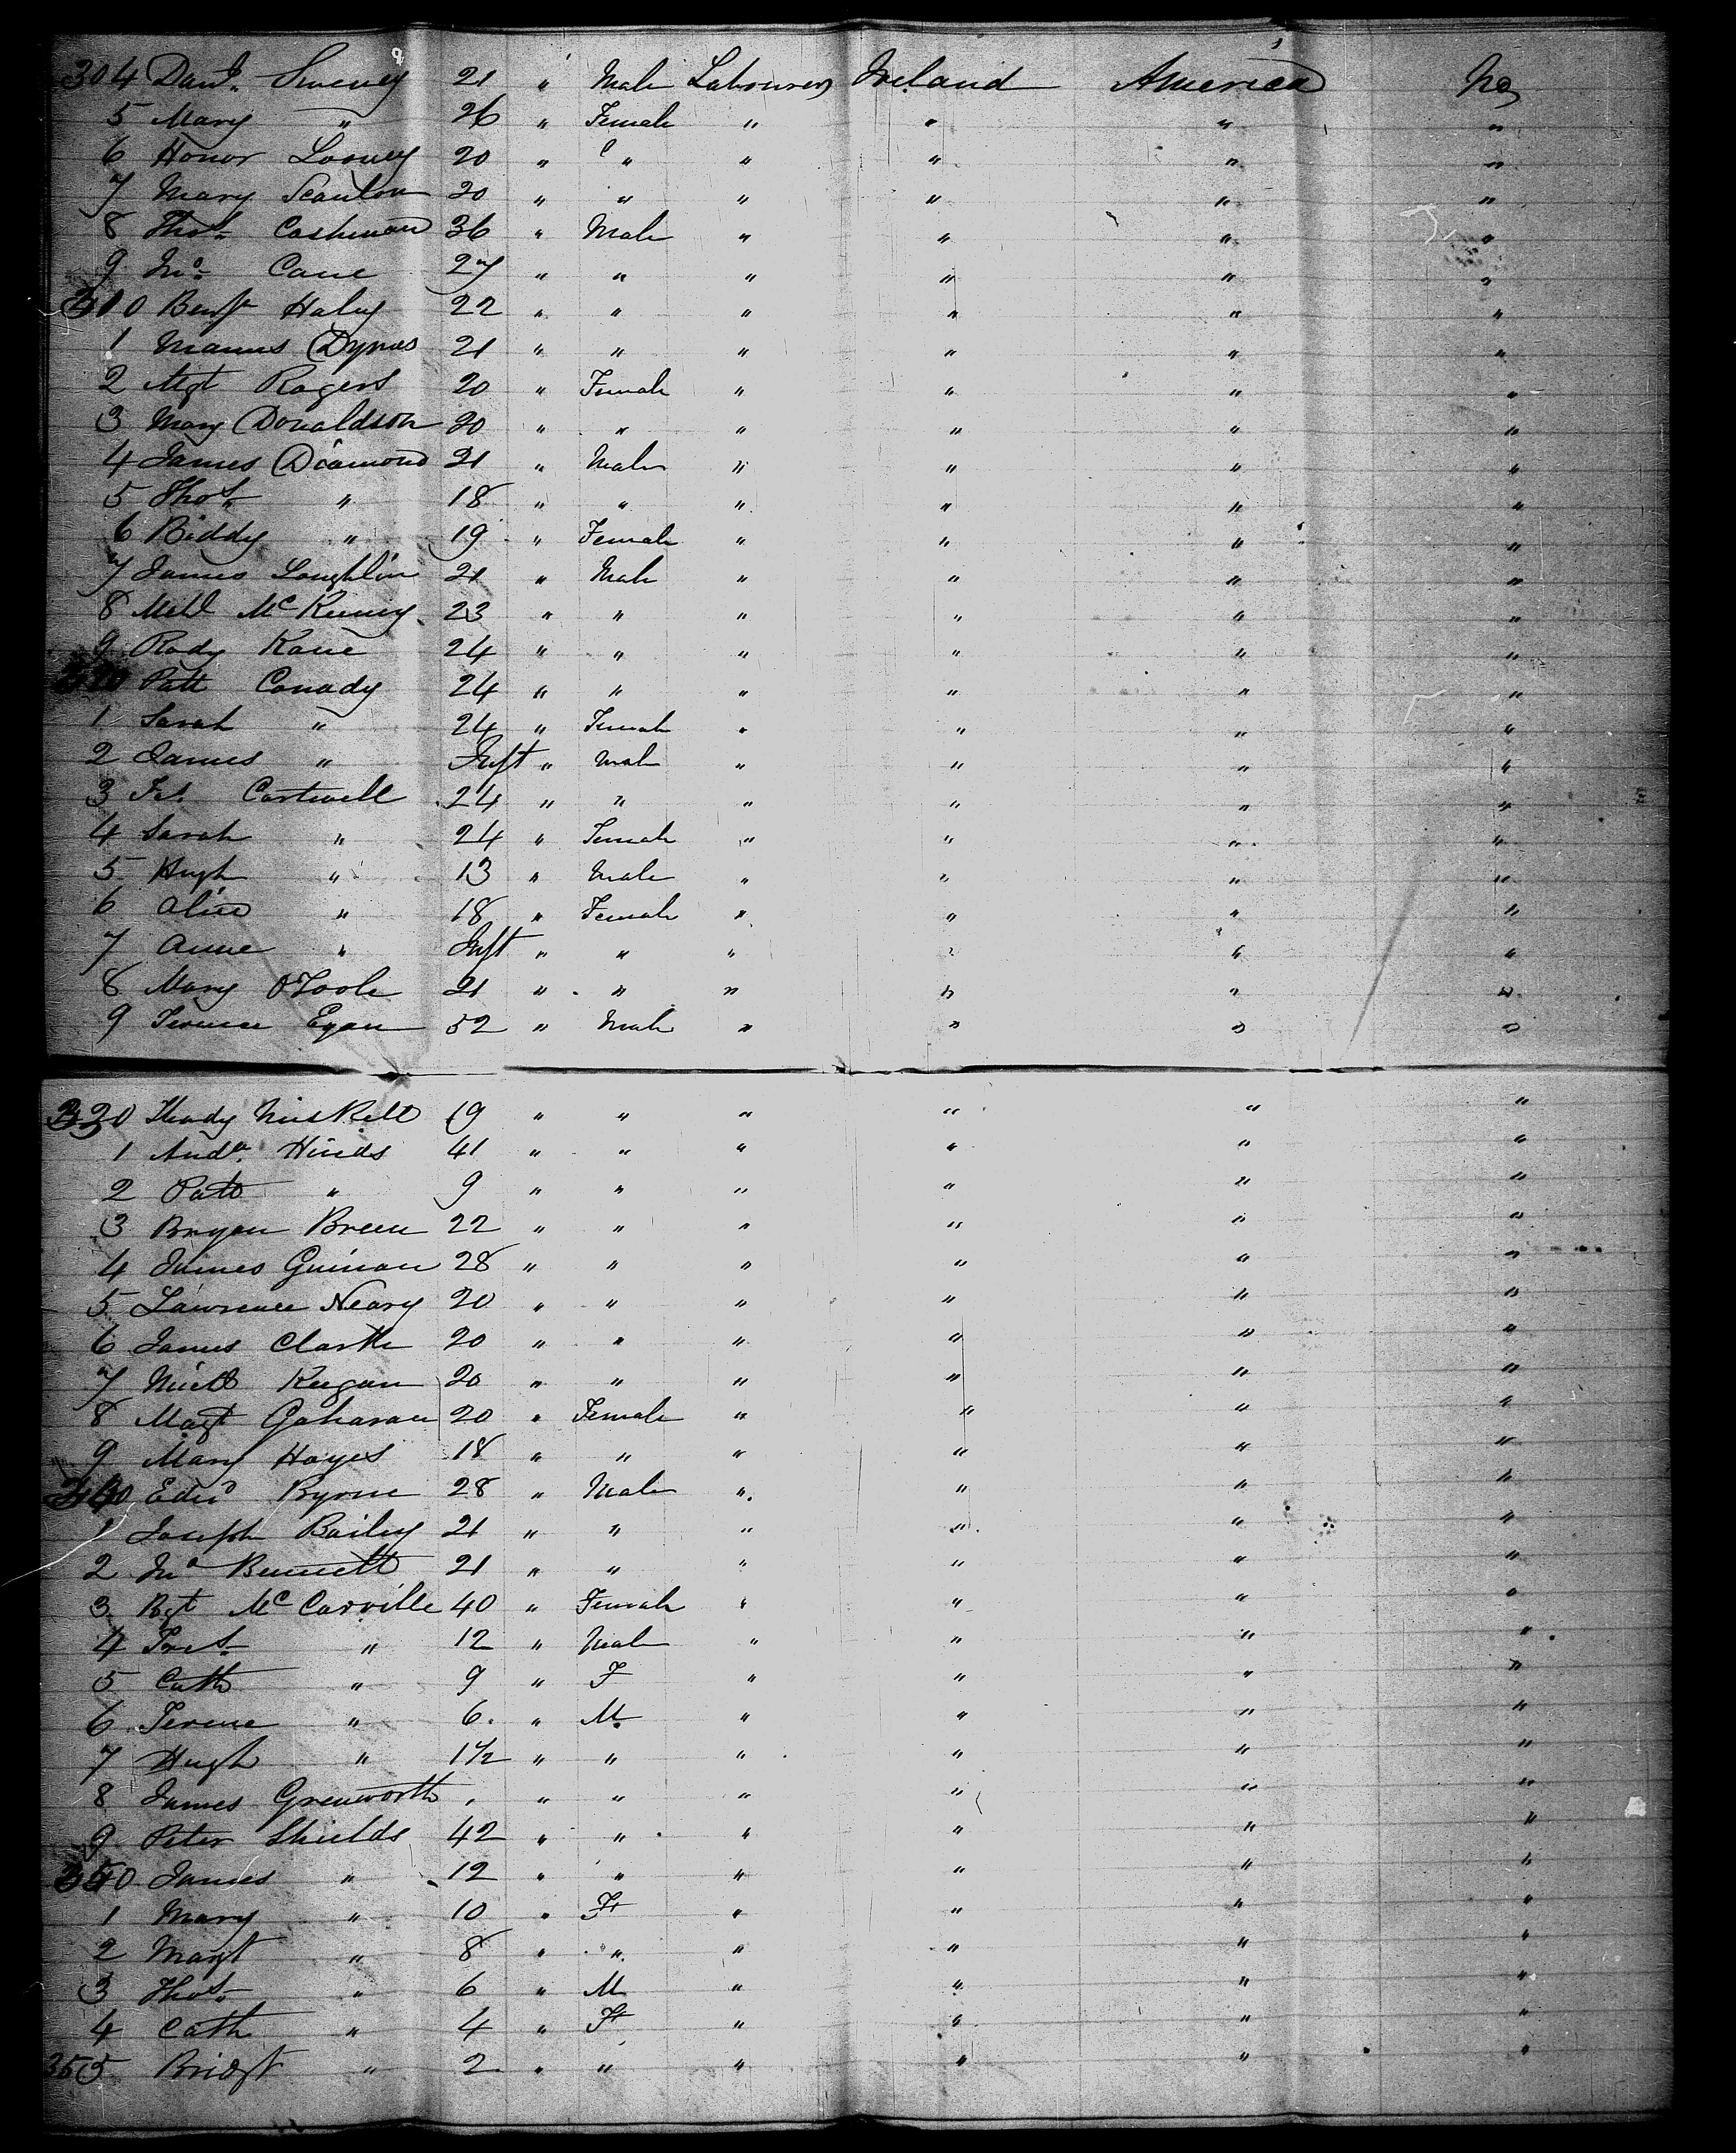 304 Danl. Sweeney 21 " Male Labourers Ireland America No
5 Mary " 26 " Female " " " "
6 Honor Looney 20 " " " " " "
7 Mary Scanlon 20 " " " " " "
8 Thos. Cashman 36 " Male " " " "
9 Jno. Cane 27 " " " " " "
310 Benjn Haley 22 " " " " " "
1 Manus 21 " " " " " "
2 Mgt Rogers 20 " Female " " " "
3 Mary Donaldson 20 " " " " " "
4 James Diamond 21 " Male " " " "
5 Thos. " 18 " " " " " "
6 Biddy " 19 " Female " " " "
7 James Loughlin 21 " Male " " " "
8 Mill McKenny 23 " " " " " "
9 Rody Kane 24 " " " " " "
320 Patt Conady 24 " " " " " "
1 Sarah " 24 " Female " " " "
2 James " Inft " Male " " " "
3 Jas. Cartwell 24 " " " " " "
4 Sarah " 24 " Female " " " "
5 Hugh " 13 " Male " " " "
6 Alice " 18 " Female " " " "
7 Anne " Inft " " " " " "
8 Mary O'Toole 21 " " " " " "
9 Terence Egan 52 " Male " " " "
330 Thady 19 " " " " " "
1 Andw. Hinds 41 " " " " " "
2 Patt " 9 " " " " " "
3 Bryan Breen 22 " " " " " "
4 James Guinan 28 " " " " " "
5 Lawrence Neary 20 " " " " " "
6 James Clarke 20 " " " " " "
7 Micll Keegan 20 " " " " " "
8 Magt Gaharan 20 " Female " " " "
9 Mary Hayes 18 " " " " " "
340 Edwd Byrne 28 " Male " " " "
1 Joseph Bailey 21 " " " " " "
2 Jno Bennett 21 " " " " " "
3 Bgt McCarville 40 " Female " " " "
4 " 12 " Male " " " "
5 Cath " 9 " F " " " "
6 Terence " 6 " M " " " "
7 Hugh " 1 1/2 " " " " " "
8 James Grenworth " " " " " "
9 Peter Shields 42 " " " " " "
350 James " 12 " " " " " "
1 Mary " 10 " F " " " "
2 Margt " 8 " " " " " "
3 Thos. " 6 " M " " " "
4 Cath " 4 " F " " " "
355 Bridgt " 2 " " " " " "